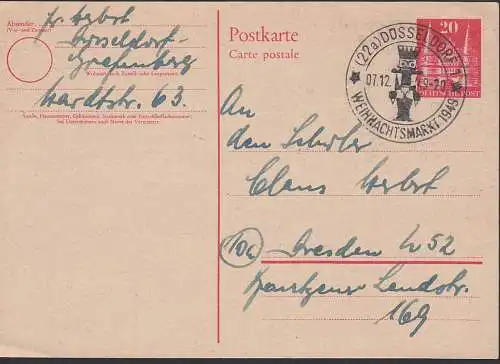 Absender:
Fr. Herbst
Düsseldorf-
Grafenberg
Wohnort, auch Zustell- oder Leitpostamt
Hardtstr. 63.
Straße, Hausnummer, Gebäudeteil, Stockwerk oder Postschließfachnummer;
bei Untermietern auch Name des Vermieters
Postkarte
Carte postale
(22a) DÜSSELDORF
07.12.
WEIHNACHTSMARKT 1949
20
DEUTSCHE POST
An
den Schüler
Claus Herbst
(10a) Dresden N 52
Bautzener Landstr.
169